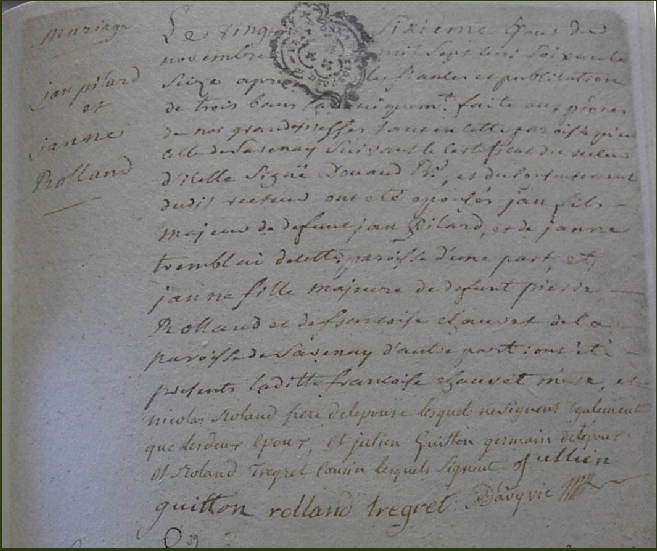 mariage
jan pilard
et
janne
Rolland
Le vingt sixieme jour de
novembre mil sept cent soixante
seize apres les fiancles et publication
de trois bans canoniquemt. faite aux prones
de nos grandmesses tant en cette paroisse qu'en
celle de Savenay suivant le certificat du recteur
d'icelle signé Douaud Ptre, et du consentement
dudit recteur ont été epousés jan fils
majeur de defunt jan Pilard, et de janne
tremblai de cette paroisse d'une part, et
janne fille majeure de defunt pierre
Rolland et de francoise chauvet de la
paroisse de Savenay d'autre part: ont été
presents laditte francoise chauvet mere, et
nicolas Roland frere de lepouse lesquel ne signent egalement
que les deux epoux, et julien Guitton germain de lepoux
et Roland Tregret cousin lesquels signent jullien
guitton rolland tregret Davy vic